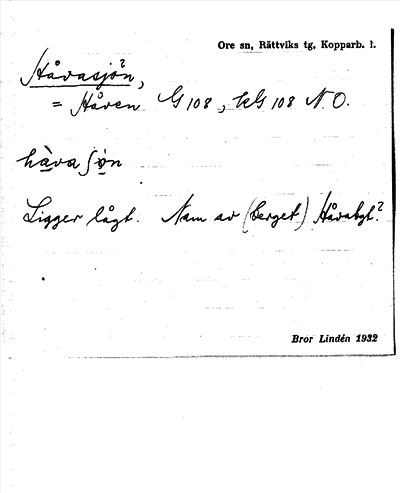 Ore sn, Rättviks tg, Kopparb. l.
Håvasjön²,
= Håven G 108, kG 108 N.O.
hàva ʃòn
Ligger lågt. Namn av (berget) Håvabgt.²
Bror Lindén 1932